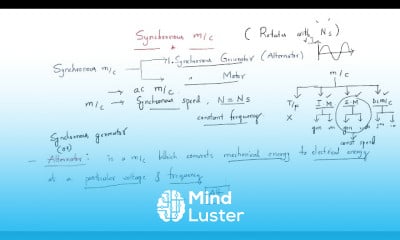 Synchronous m/c ( Rotates with 'Ns' )
Synchronous m/c → 1. Synchronous Generator (Alternator)
" Motor
m/c → ac m/c.
→ Synchronous speed, N = Ns
constant frequency
m/c
T/f I.M S.M DC m/c
X gen m gen m
const speed
Synchronous generator
(or)
- Alternator: is a m/c which converts mechanical energy to electrical energy
at a particular voltage & frequency
Mind
Luster